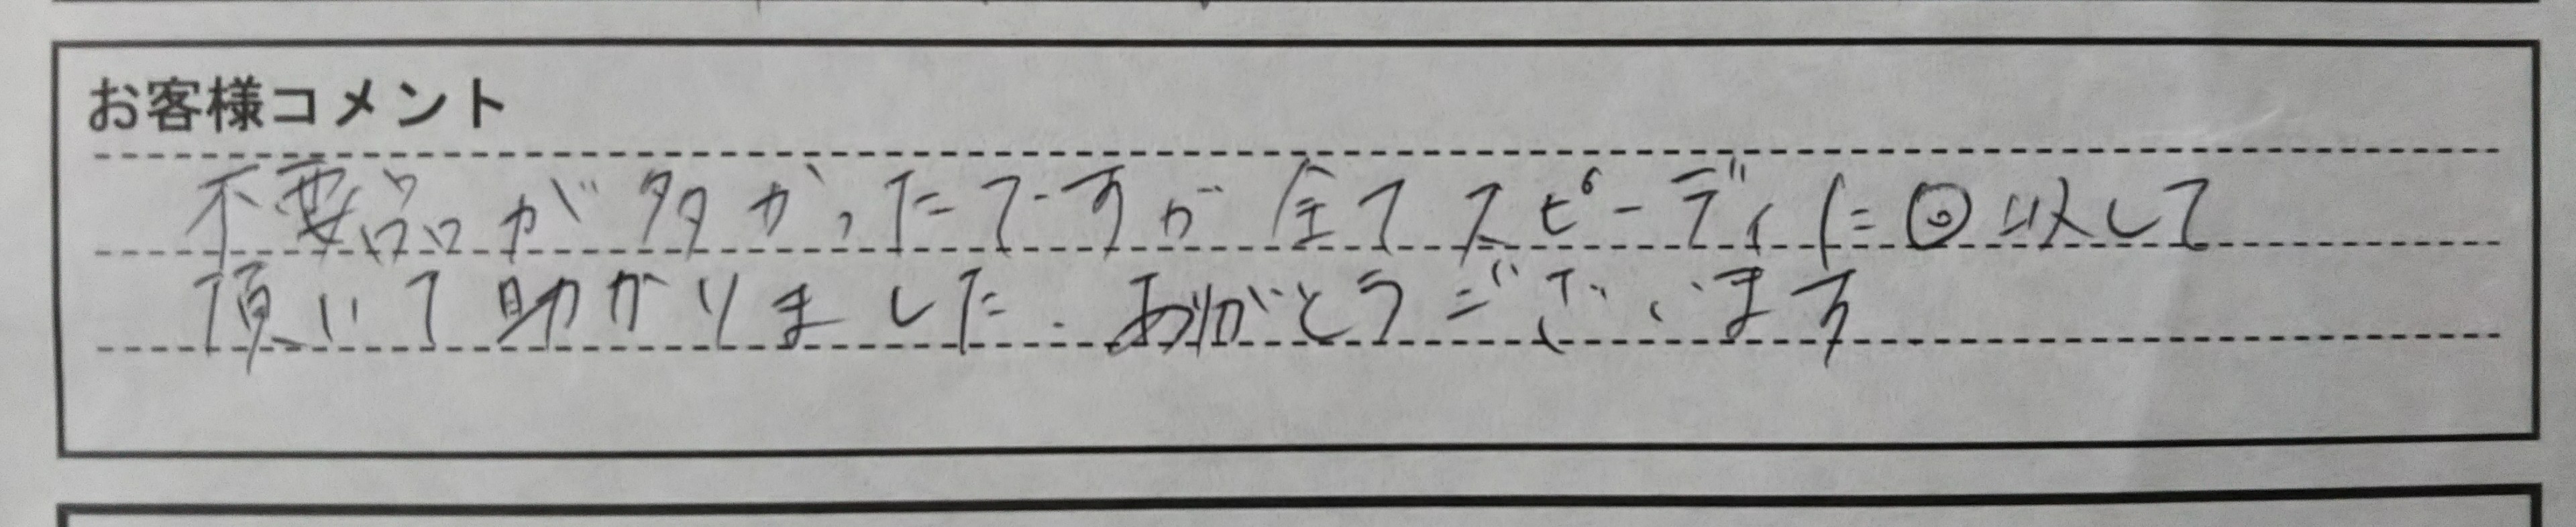 お客様コメント
不要品が多かったですが全てスピーディに回収して
頂いて助かりました。ありがとうございます